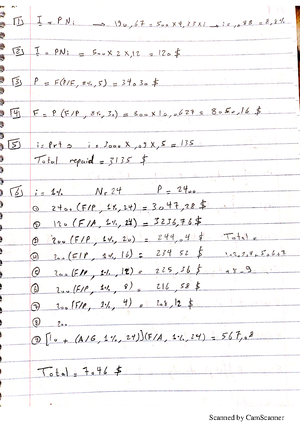 1 I = PNi → 190,67 = 500 x 4,33 x i → i = ,088 = 8,8%
2 I = PNi = 500 x 2 x ,12 = 120 $
3 P = F(P/F, 8%, 5) = 34030 $
4 F = P (F/P, 8%, 30) = 800 x 10,0627 = 8050,16 $
5 i = Prt → i = 3000 x ,09 x ,5 = 135
Total repaid = 3135 $
6 i = 1% N = 24 P = 2400
① 2400 (F/P, 1%, 24) = 3047,28 $
② 120 (F/A, 1%, 24) = 3236,76 $
③ 200 (F/P, 1%, 20) = 244,04 $ Total =
④ 200 (F/P, 1%, 16) = 234 52 $
⑤ 200 (F/P, 1%, 12) = 225,36 $
⑥ 200 (F/P, 1%, 8) = 216,58 $
⑦ 200 (F/P, 1%, 4) = 208,12 $
⑧ 200
⑨ [10 + (A/G, 1%, 24)](F/A, 1%, 24) = 567,08
Total = 7046 $
Scanned by CamScanner